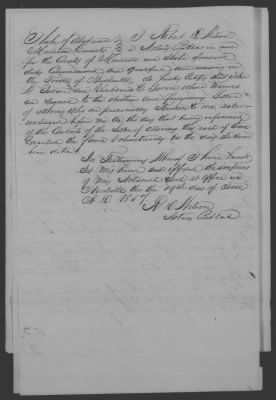 State of Alabama } I Robert W. Wilson
Madison County } a Notary Public in and
for the County of Madison and State aforesaid
duly Commissioned and qualified and residing in
the Town of Huntsville do hereby Certify that John
W. and Clabourn whose names
are signed to the above and foregoing Letter
of attorney who are personally known to me, acknowledged
before me on the day that being informed
of the Contents of the letter of attorney they each of them
Executed the same voluntarily on the day the same
bears date.
In Testimony Whereof I have hereunto
set my hand and affixed the impress
of my Notarial Seal at office in
Huntsville this the 19th day of June
A.D. 1857
R. W. Wilson
Notary Public